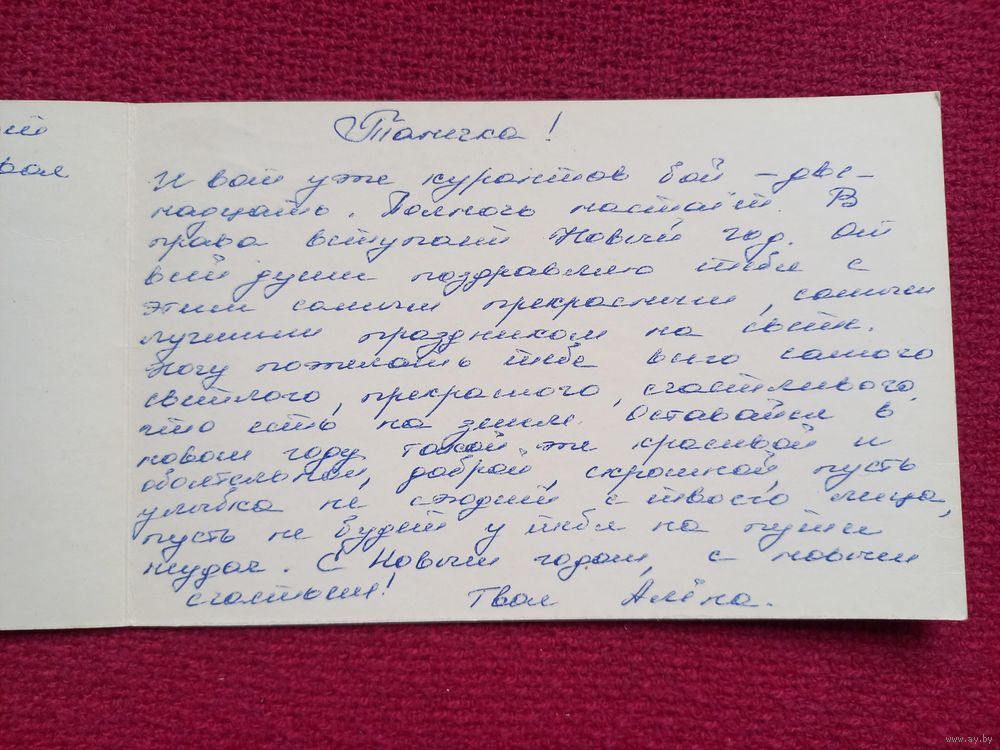 Танечка!
И вот уже курантов бой – две-
надцать. Полночь настаёт. В
права вступает Новый год. От
всей души поздравляю тебя с
этим самым прекрасным, самым
лучшим праздником на свете.
Хочу пожелать тебе всего самого
светлого, прекрасного, счастливого,
что есть на земле. Оставайся в
новом году такой же красивой и
обаятельной, доброй, скромной, пусть
улыбка не сходит с твоего лица,
пусть не будет у тебя на пути
неудач. С Новым годом, с новым
счастьем! Твоя Алёна.
www.ay.by